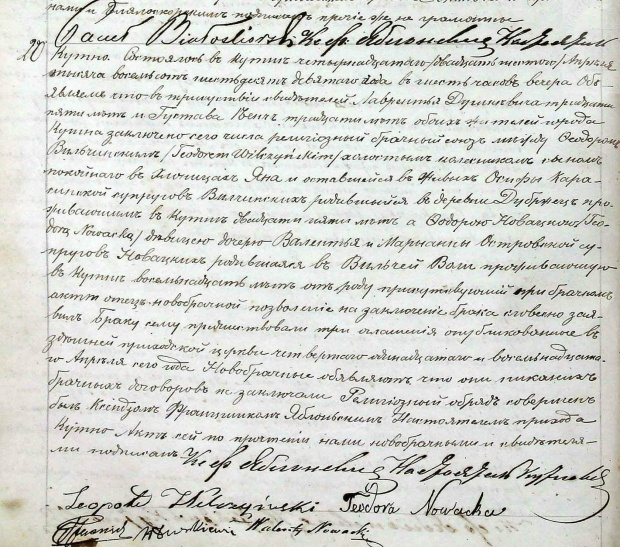 нами и Бялоскорскимъ подписанъ прочіе же не грамотные
20 Кс Ф Яблоневскій Настоятель
Кутно. Состоялось въ Кутнѣ четырнадцатаго /двадцать шестого/ Апрѣля
тысяча восемьсотъ шестьдесятъ девятаго года въ шесть часовъ вечера Объ
являемъ что въ присутствіи свидѣтелей Лаврентья тридцати
пяти лѣтъ и Густава тридцати лѣтъ обоихъ жителей города
Кутна заключено сего числа религіозный брачный союзъ между Ѳеодоромъ
Вильчинскимъ /Teodorem Wilczyńskim/ холостымъ сыномъ
покойнаго въ Яна и оставшейся въ живыхъ Осифы Кара
синской супруговъ Вильчинскихъ родившійся въ деревнѣ про
живающимъ въ Кутнѣ двадцати пяти лѣтъ а Ѳеодорою Новацкою /Teo
dorą Nowacką/ дѣвицею дочерью Валентья и Маріанны Островской су
пруговъ Новацкихъ родившаяся въ Вильчей проживающую
въ Кутнѣ восемьнадцать лѣтъ отъ роду присутствующій при брачномъ
актѣ отецъ новобрачной позволеніе на заключеніе брака словесно зая
вилъ Браку сему предшествовали три оглашенія опубликованное въ
здешней приходской церкви четвертаго одинадцатаго и восемьнадцата
го Апрѣля сего года Новобрачные объявляютъ что они никакихъ
брачныхъ договоровъ не заключали Религіозный обрядъ совершенъ
былъ Ксендзомъ Францишкомъ Яблоньскимъ Настоятелемъ прихода
Кутно Актъ сей по прочтеніи нами новобрачными и свидѣтеля-
ми подписанъ Кс Ф Яблоневскій Настоятель
Wilczyński Teodora Nowacka
Walenty Nowacki